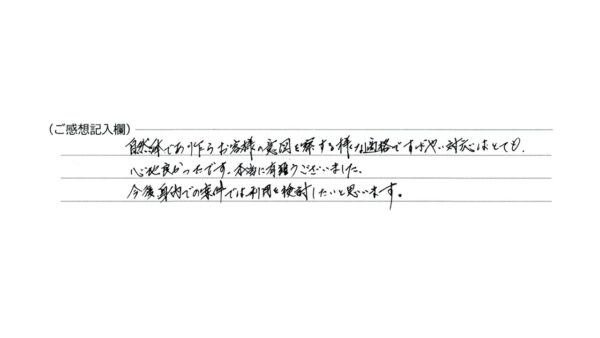 (ご感想記入欄)
自然体であり作らお客様の意図を察する様な適格ですばやい対応はとても
心地良かったです。本当に有難うございました。
今後身内での案件では利用を検討したいと思います。